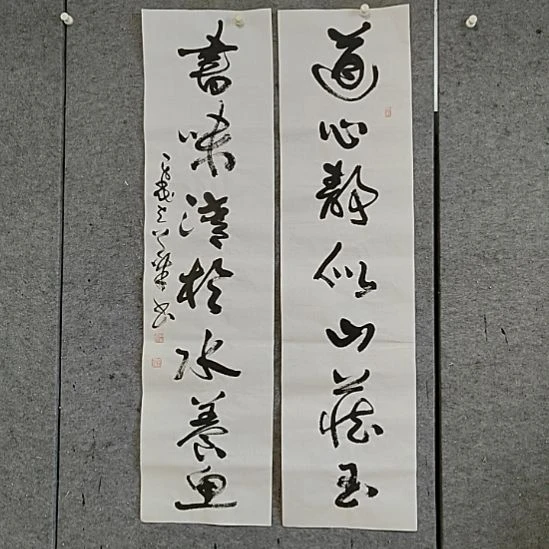 道心静似山藏玉
書味清於水養魚